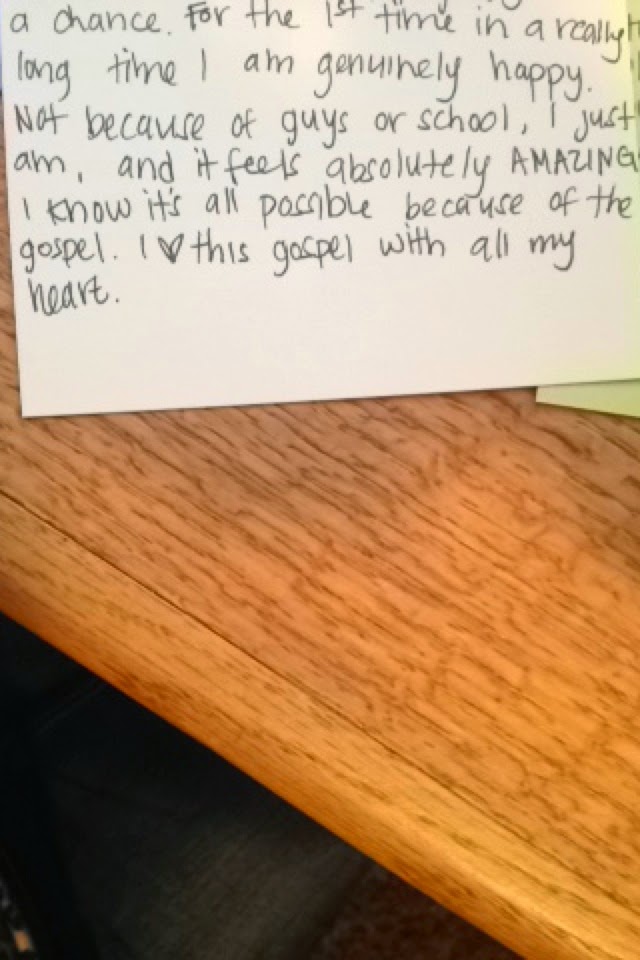 a chance. For the 1st time in a really
long time I am genuinely happy.
Not because of guys or school, I just
am, and it feels absolutely AMAZING
I know it's all possible because of the
gospel. I ♥ this gospel with all my
heart.